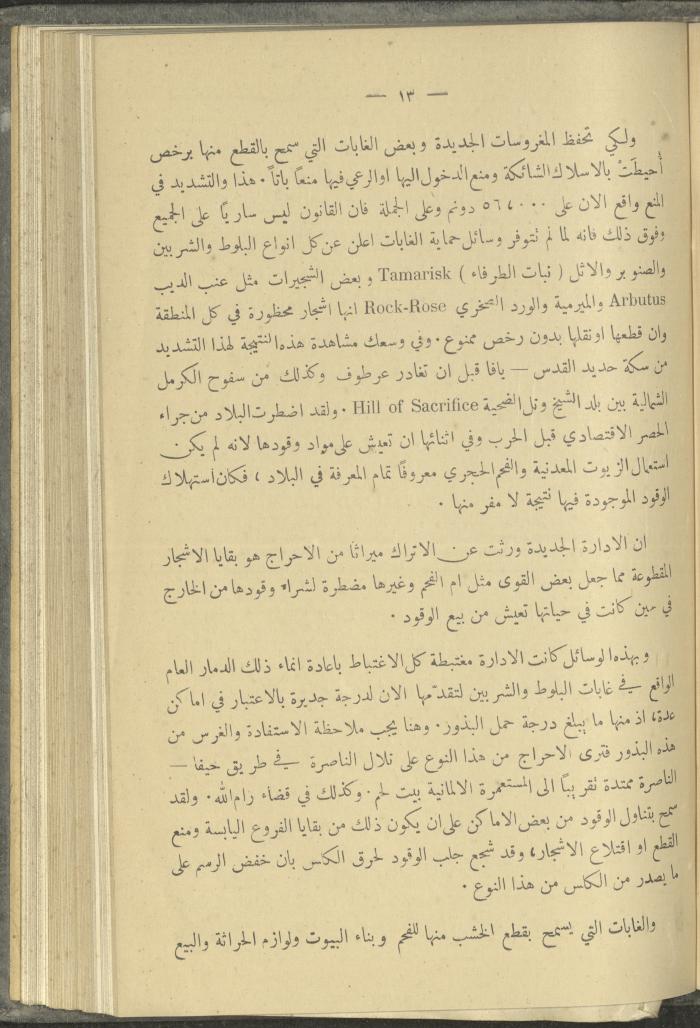 — ١٣ —
ولكي تحفظ المغروسات الجديدة وبعض الغابات التي سمح بالقطع منها برخص
أُحيطَتْ بالاسلاك الشائكة ومنع الدخول اليها او الرعي فيها منعاً باتاً . هذا والتشديد في
المنع واقع الان على ٥٦٧٠٠٠ دونم وعلى الجملة فان القانون ليس سارياً على الجميع
وفوق ذلك فانه لما لم تتوفر وسائل حماية الغابات اعلن عن كل انواع البلوط والشربين
والصنوبر والاثل ( نبات الطرفاء ) Tamarisk وبعض الشجيرات مثل عنب الديب
Arbutus والميرمية والورد الصخري Rock-Rose انها اشجار محظورة في كل المنطقة
وان قطعها او نقلها بدون رخص ممنوع . وفي وسعك مشاهدة هذه النتيجة لهذا التشديد
من سكة حديد القدس — يافا قبل ان تغادر عرطوف وكذلك من سفوح الكرمل
الشمالية بين بلد الشيخ وتل الضحية Hill of Sacrifice . ولقد اضطرت البلاد من جراء
الحصر الاقتصادي قبل الحرب وفي اثنائها ان تعيش على مواد وقودها لانه لم يكن
استعمال الزيوت المعدنية والفحم الحجري معروفاً تمام المعرفة في البلاد ، فكان استهلاك
الوقود الموجودة فيها نتيجة لا مفر منها .
ان الادارة الجديدة ورثت عن الاتراك ميراثاً من الاحراج هو بقايا الاشجار
المقطوعة مما جعل بعض القوى مثل ام الفحم وغيرها مضطرة لشراء وقودها من الخارج
في حين كانت في حياتها تعيش من بيع الوقود .
وبهذه الوسائل كانت الادارة مغتبطة كل الاغتباط باعادة انماء ذلك الدمار العام
الواقع في غابات البلوط والشربين لتقدّمها الان لدرجة جديرة بالاعتبار في اماكن
عدة، اذ منها ما يبلغ درجة حمل البذور . وهنا يجب ملاحظة الاستفادة والغرس من
هذه البذور فترى الاحراج من هذا النوع على تلال الناصرة في طريق حيفا —
الناصرة ممتدة تقريباً الى المستعمرة الالمانية بيت لحم . وكذلك في قضاء رام الله . ولقد
سمح بتناول الوقود من بعض الاماكن على ان يكون ذلك من بقايا الفروع اليابسة ومنع
القطع او اقتلاع الاشجار، وقد شجع جلب الوقود لحرق الكلس بان خفض الرسم على
ما يصدر من الكلس من هذا النوع .
والغابات التي يسمح بقطع الخشب منها للفحم وبناء البيوت ولوازم الحراثة والبيع